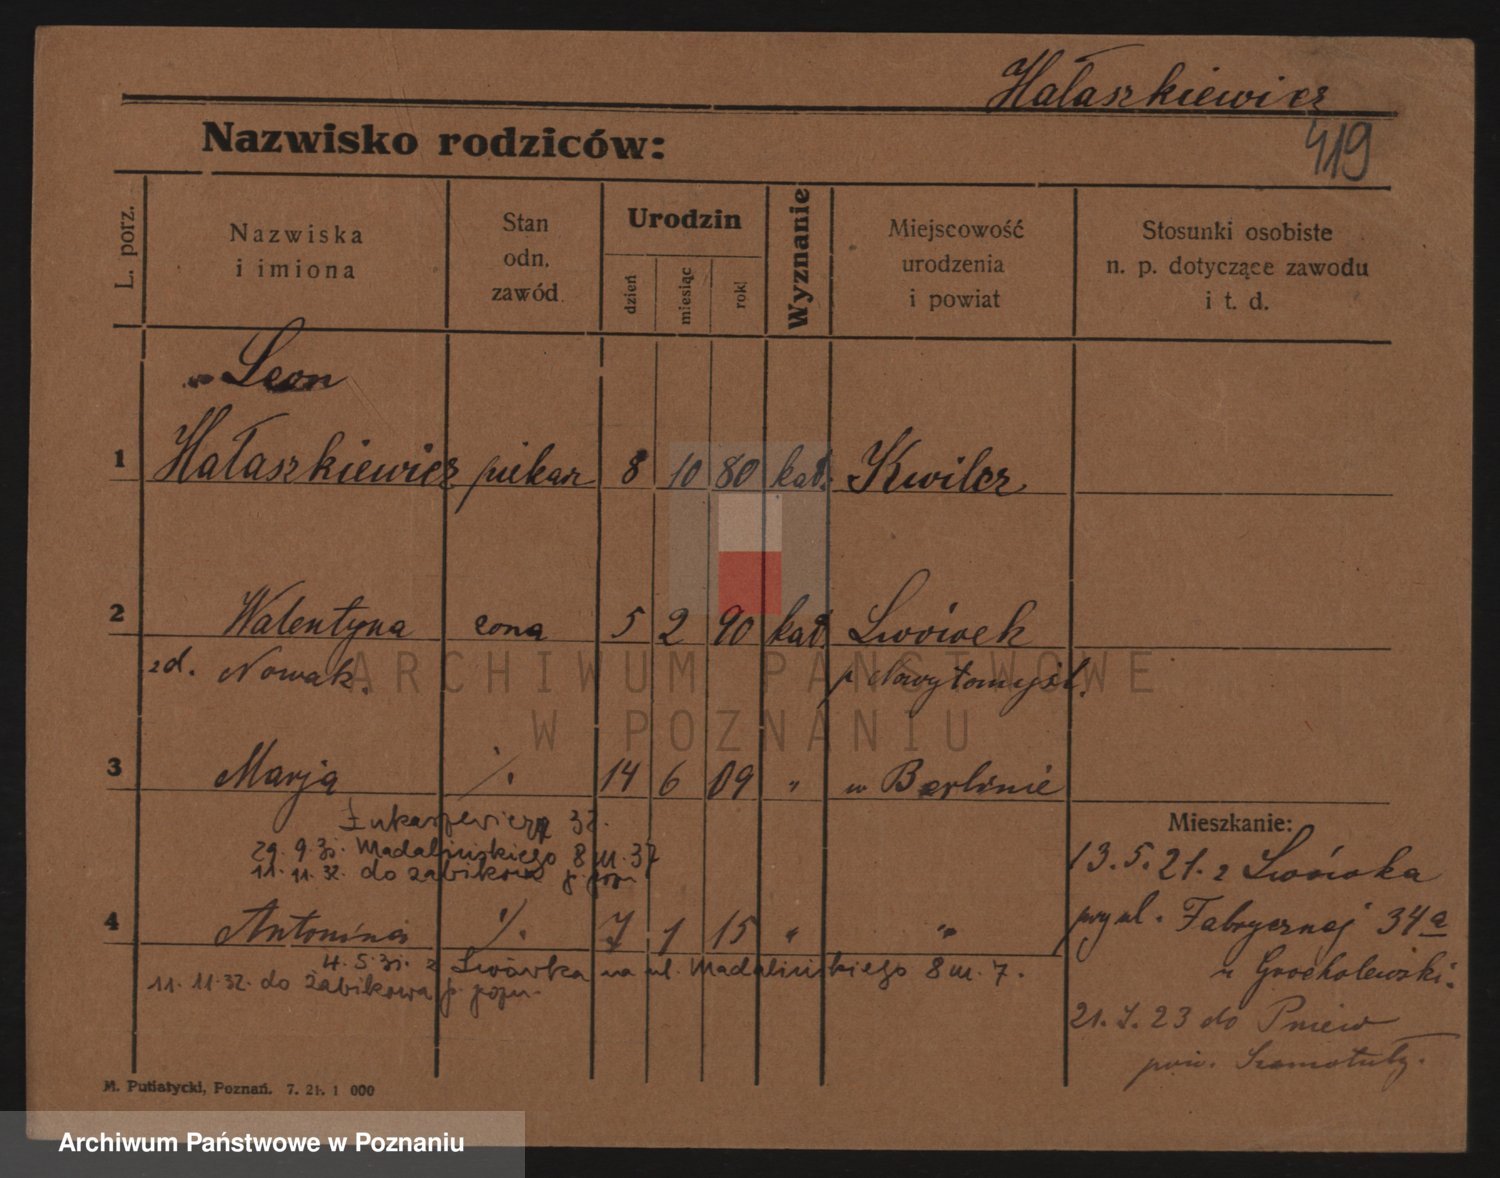 Hałaszkiewicz
419
Nazwisko rodziców:
L. porz.
Nazwiska
i imiona
Stan
odn.
zawód
Urodzin
dzień
miesiąc
rok
Wyznanie
Miejscowość
urodzenia
i powiat
Stosunki osobiste
n. p. dotyczące zawodu
i t. d.
Leon
1 Hałaszkiewicz piekarz 8 10 80 kat. Kwilcz
2 Walentyna żona 5 2 90 kat. Lwówek
zd. Nowak. p Nowytomyśl.
ARCHIWUM PAŃSTWOWE
W POZNANIU
3 Marja ./. 14 6 09 " w Berlinie
29. 9. 31. Madalińskiego 8 m. 37
11. 11. 32. do Żabikowa p. pozn.
4 Antonina ./. 7 1 15 " "
4. 5. 31. z Lwówka na ul. Madalińskiego 8 m. 7.
11. 11. 32. do Żabikowa p. pozn.
Mieszkanie:
13. 5. 21. z Lwówka
przy ul. Fabrycznej 34a
u Grocholewski.
21. 7. 23 do Pniew
pow. Szamotuły.
M. Putiatycki, Poznań. 7. 21. 1 000
Archiwum Państwowe w Poznaniu